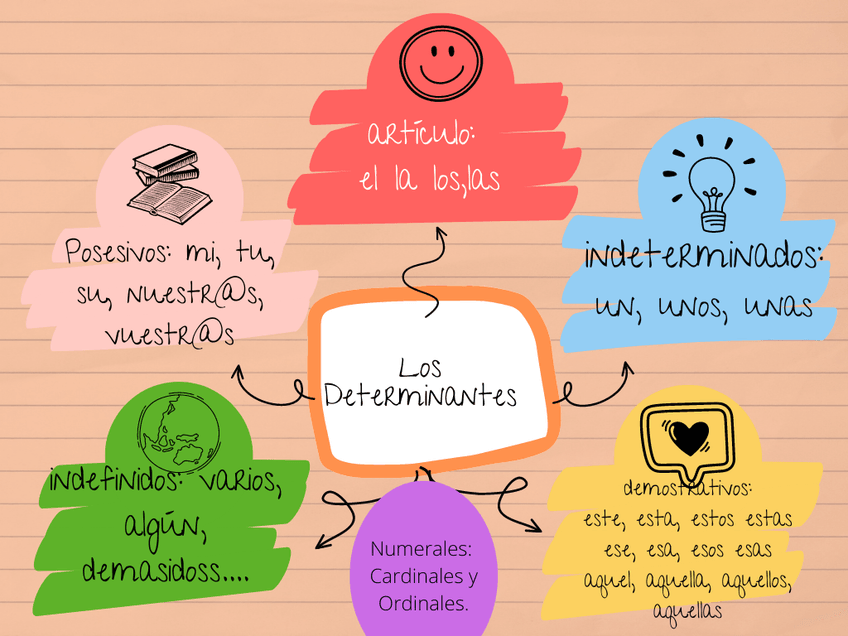 artículo:
el la los,las
Posesivos: mi, tu,
su, nuestr@s,
vuestr@s
indeterminados:
un, unos, unas
Los
Determinantes
indefinidos: varios,
algún,
demasidoss....
Numerales:
Cardinales y
Ordinales.
demostrativos:
este, esta, estos estas
ese, esa, esos esas
aquel, aquella, aquellos,
aquellas